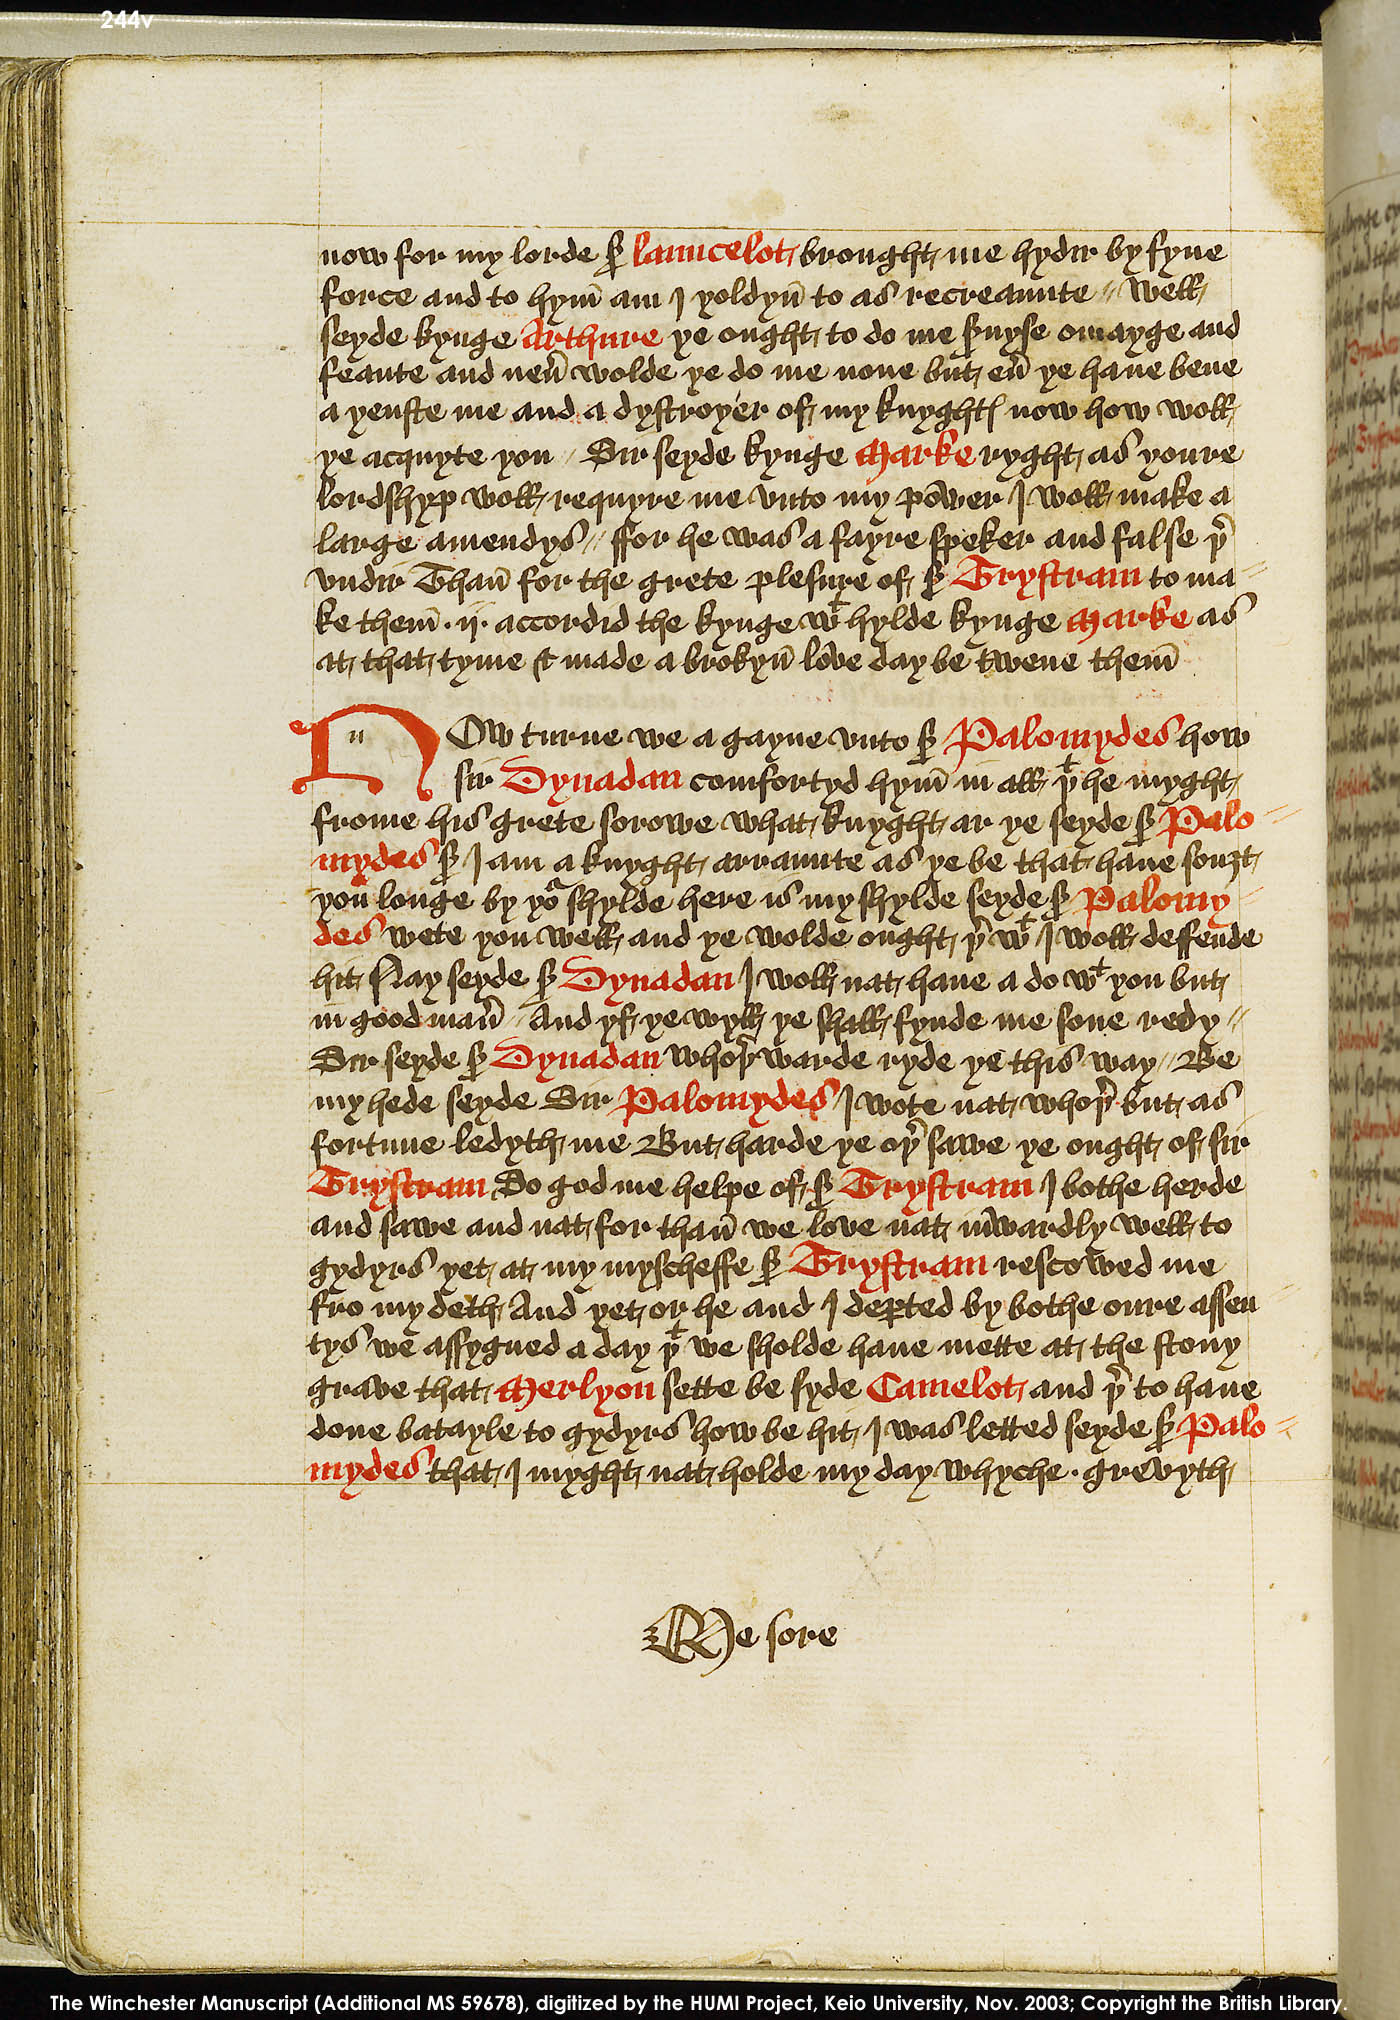 244v
now for my lorde sͥ launcelot brought me hydir by fyne
force and to hym̄ am I yoldyn̄ to as recreaunte // Well
seyde kynge Arthure ye ought to do me sͥuyse omayge and
feaute and neu̾ wolde ye do me none but eu̾ ye haue bene
a yenste me and a dystroyer of my knyghtꝭ now how woll
ye acquyte you / Sir seyde kynge Marke ryght as youre
lordshyp woll requyre me vnto my power I woll make a
large amendys // ffor he was a fayre speker and false þ̾
vndir Than̄ for the grete plesure of sͥ Trystram to ma⸗
ke them̄ · ij · accordid the kynge wᵗ hylde kynge Marke as
at that tyme & made a brokyn̄ love day be twene them̄
n
NOw turne we a gayne vnto sͥ Palomydes how
sir Dynadan comfortyd hym̄ in all þᵗ he myght
frome his grete sorowe what knyght ar ye seyde sͥ Palo⸗
mydes sͥ I am a knyght arraunte as ye be that haue souȝt
you longe by yoᵘ shylde here is my shylde seyde sͥ Palomy⸗
des wete you well and ye wolde ought þ̾ wᵗ I woll deffende
hit Nay seyde sͥ Dynadan I woll nat haue a do wᵗ you but
in good man̾ // And yf ye wyll ye shall fynde me sone redy //
Sir seyde sͥ Dynadan whoþ̾warde ryde ye this way // Be
my hede seyde Sir Palomydes I wote nat whoþ̾ but as
fortune ledyth me But harde ye oþ̾ sawe ye ought of sir
Trystram So god me helpe of sͥ Trystram I bothe herde
and sawe and nat for than̄ we love nat inwardly well to
gydyrs yet at my myscheffe sͥ Trystram rescowed me
fro my deth And yet or he and I deꝑted by bothe oure assen
tys we assygned a day þᵗ we sholde haue mette at the stony
grave that Merlyon sette be syde Camelot and þ̾ to haue
done batayle to gydyrs how be hit I was letted seyde sͥ Palo⸗
mydes that I myght nat holde my day whyche · grevyth
Me sore
The Winchester Manuscript (Additional MS 59678), digitized by the HUMI Project, Keio University, Nov. 2003; Copyright the British Library.